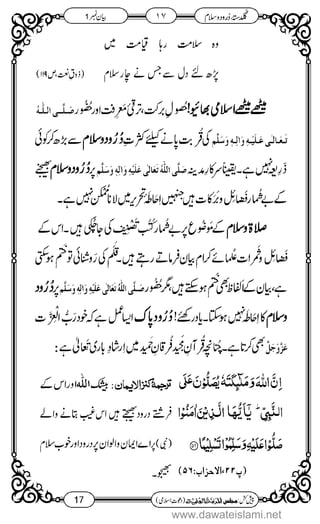 گلدستۂ درود و سلام ۱۷ بیان نمبر 1
وہ سلامت رہا قیامت میں
پڑھ لئے دل سے جس نے چار سلام (ذوقِ نعت، ص۱۱۹)
میٹھے میٹھے اسلامی بھائیو! حصولِ برکت، ترقیِ معرفت اور حضور صَلَّی اللّٰہُ
تَعَالٰی عَلَیْہِ وَاٰلِہٖ وَسَلَّم کی قربت پانے کیلئے کثرتِ دُرُود و سلام سے بڑھ کر کوئی
ذریعہ نہیں ہے۔ یقیناً سرکارِ مدینہ صَلَّی اللّٰہُ تَعَالٰی عَلَیْہِ وَاٰلِہٖ وَسَلَّم پر دُرُود و سلام بھیجنے
کے بے شمار فضائل و برکات ہیں جنہیں احاطۂ تحریر میں لانا ممکن نہیں ہے۔
صلاۃ و سلام کے موضوع پر بے شمار کتب تصنیف کی جا چکی ہیں۔ اس کے
فضائل و ثمرات علمائے کرام بیان فرماتے رہتے ہیں۔ قلم کی روشنائی تو ختم ہو سکتی
ہے، بیان کے الفاظ بھی ختم ہو سکتے ہیں مگر حضور صَلَّی اللّٰہُ تَعَالٰی عَلَیْہِ وَاٰلِہٖ وَسَلَّم پر دُرُود
و سلام کا احاطہ نہیں ہو سکتا۔ یاد رکھئے! دُرُودِ پاک ایسا عمل ہے کہ خود ربُّ العزت
عَزَّوَجَلَّ بھی کرتا ہے۔ چنانچہ قرآنِ مجید، فرقانِ حمید میں ارشادِ باری تعالیٰ ہے:
اِنَّ اللّٰهَ وَ مَلٰٓىٕكَتَهٗ یُصَلُّوْنَ عَلَى ترجمۂ کنزالایمان: بیشک اللّٰہ اور اس کے
النَّبِیِّؕ یٰۤاَیُّهَا الَّذِیْنَ اٰمَنُوْا فرشتے درود بھیجتے ہیں اس غیب بتانے والے
صَلُّوْا عَلَیْهِ وَ سَلِّمُوْا تَسْلِیْمًا(۵۶) (نبی) پر اے ایمان والو ان پر درود اور خوب سلام
(پ۲۲، الاحزاب: ۵۶) بھیجو۔
17 (دعوتِ اسلامی) پیش کش: مجلس
www.dawateislami.net